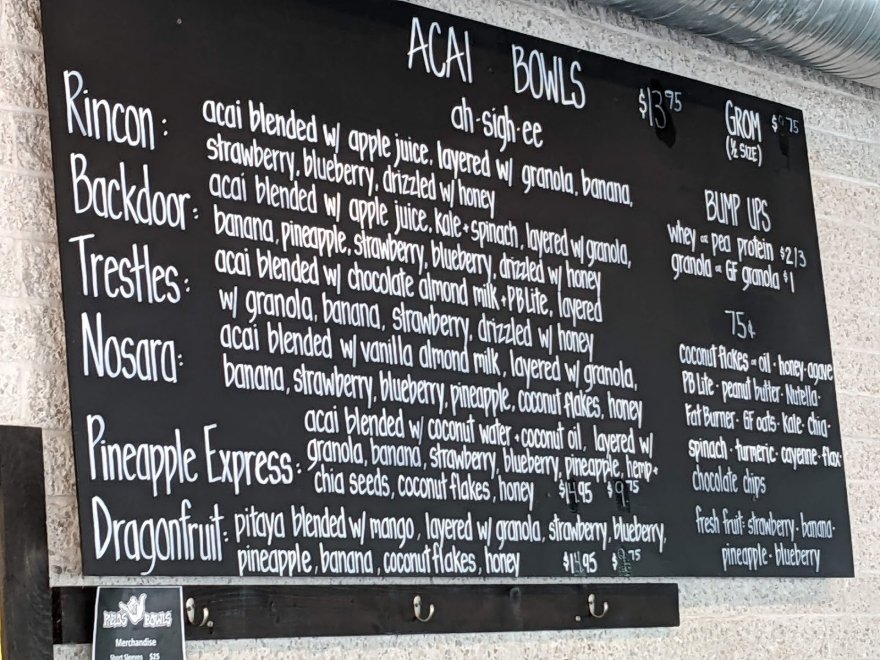 ACAI BOWLS
ah·sigh·ee
$13.75
GROM
(½ SIZE)
Rincon: acai blended w/ apple juice, layered w/ granola, banana,
strawberry, blueberry, drizzled w/ honey
Backdoor: acai blended w/ apple juice, kale + spinach, layered w/ granola,
banana, pineapple, strawberry, blueberry, drizzled w/ honey
Trestles: acai blended w/ chocolate almond milk + PB Lite, layered
w/ granola, banana, strawberry, drizzled w/ honey
Nosara: acai blended w/ vanilla almond milk, layered w/ granola,
banana, strawberry, blueberry, pineapple, coconut flakes, honey
Pineapple Express: acai blended w/ coconut water + coconut oil, layered w/
granola, banana, strawberry, blueberry, pineapple, hemp +
chia seeds, coconut flakes, honey $14.95 $9.75
Dragonfruit: pitaya blended w/ mango, layered w/ granola, strawberry, blueberry,
pineapple, banana, coconut flakes, honey $14.95
BUMP UPS
whey or pea protein $2/3
granola or GF granola $1
75¢
coconut flakes or oil · honey · agave
PB Lite · peanut butter · Nutella ·
Fat Burner · GF oats · kale · chia ·
spinach · turmeric · cayenne · flax
chocolate chips
fresh fruit · strawberry · banana ·
pineapple · blueberry
BOWLS
Merchandise
Short Sleeves $25